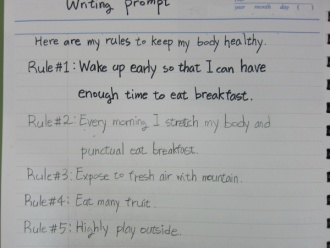 Writing prompt
year month day ( )
Here are my rules to keep my body healthy.
Rule#1: Wake up early so that I can have
enough time to eat breakfast.
Rule#2: Every morning I stretch my body and
punctual eat breakfast.
Rule#3: Expose to fresh air with mountain.
Rule#4: Eat many fruit.
Rule#5: Highly play outside.